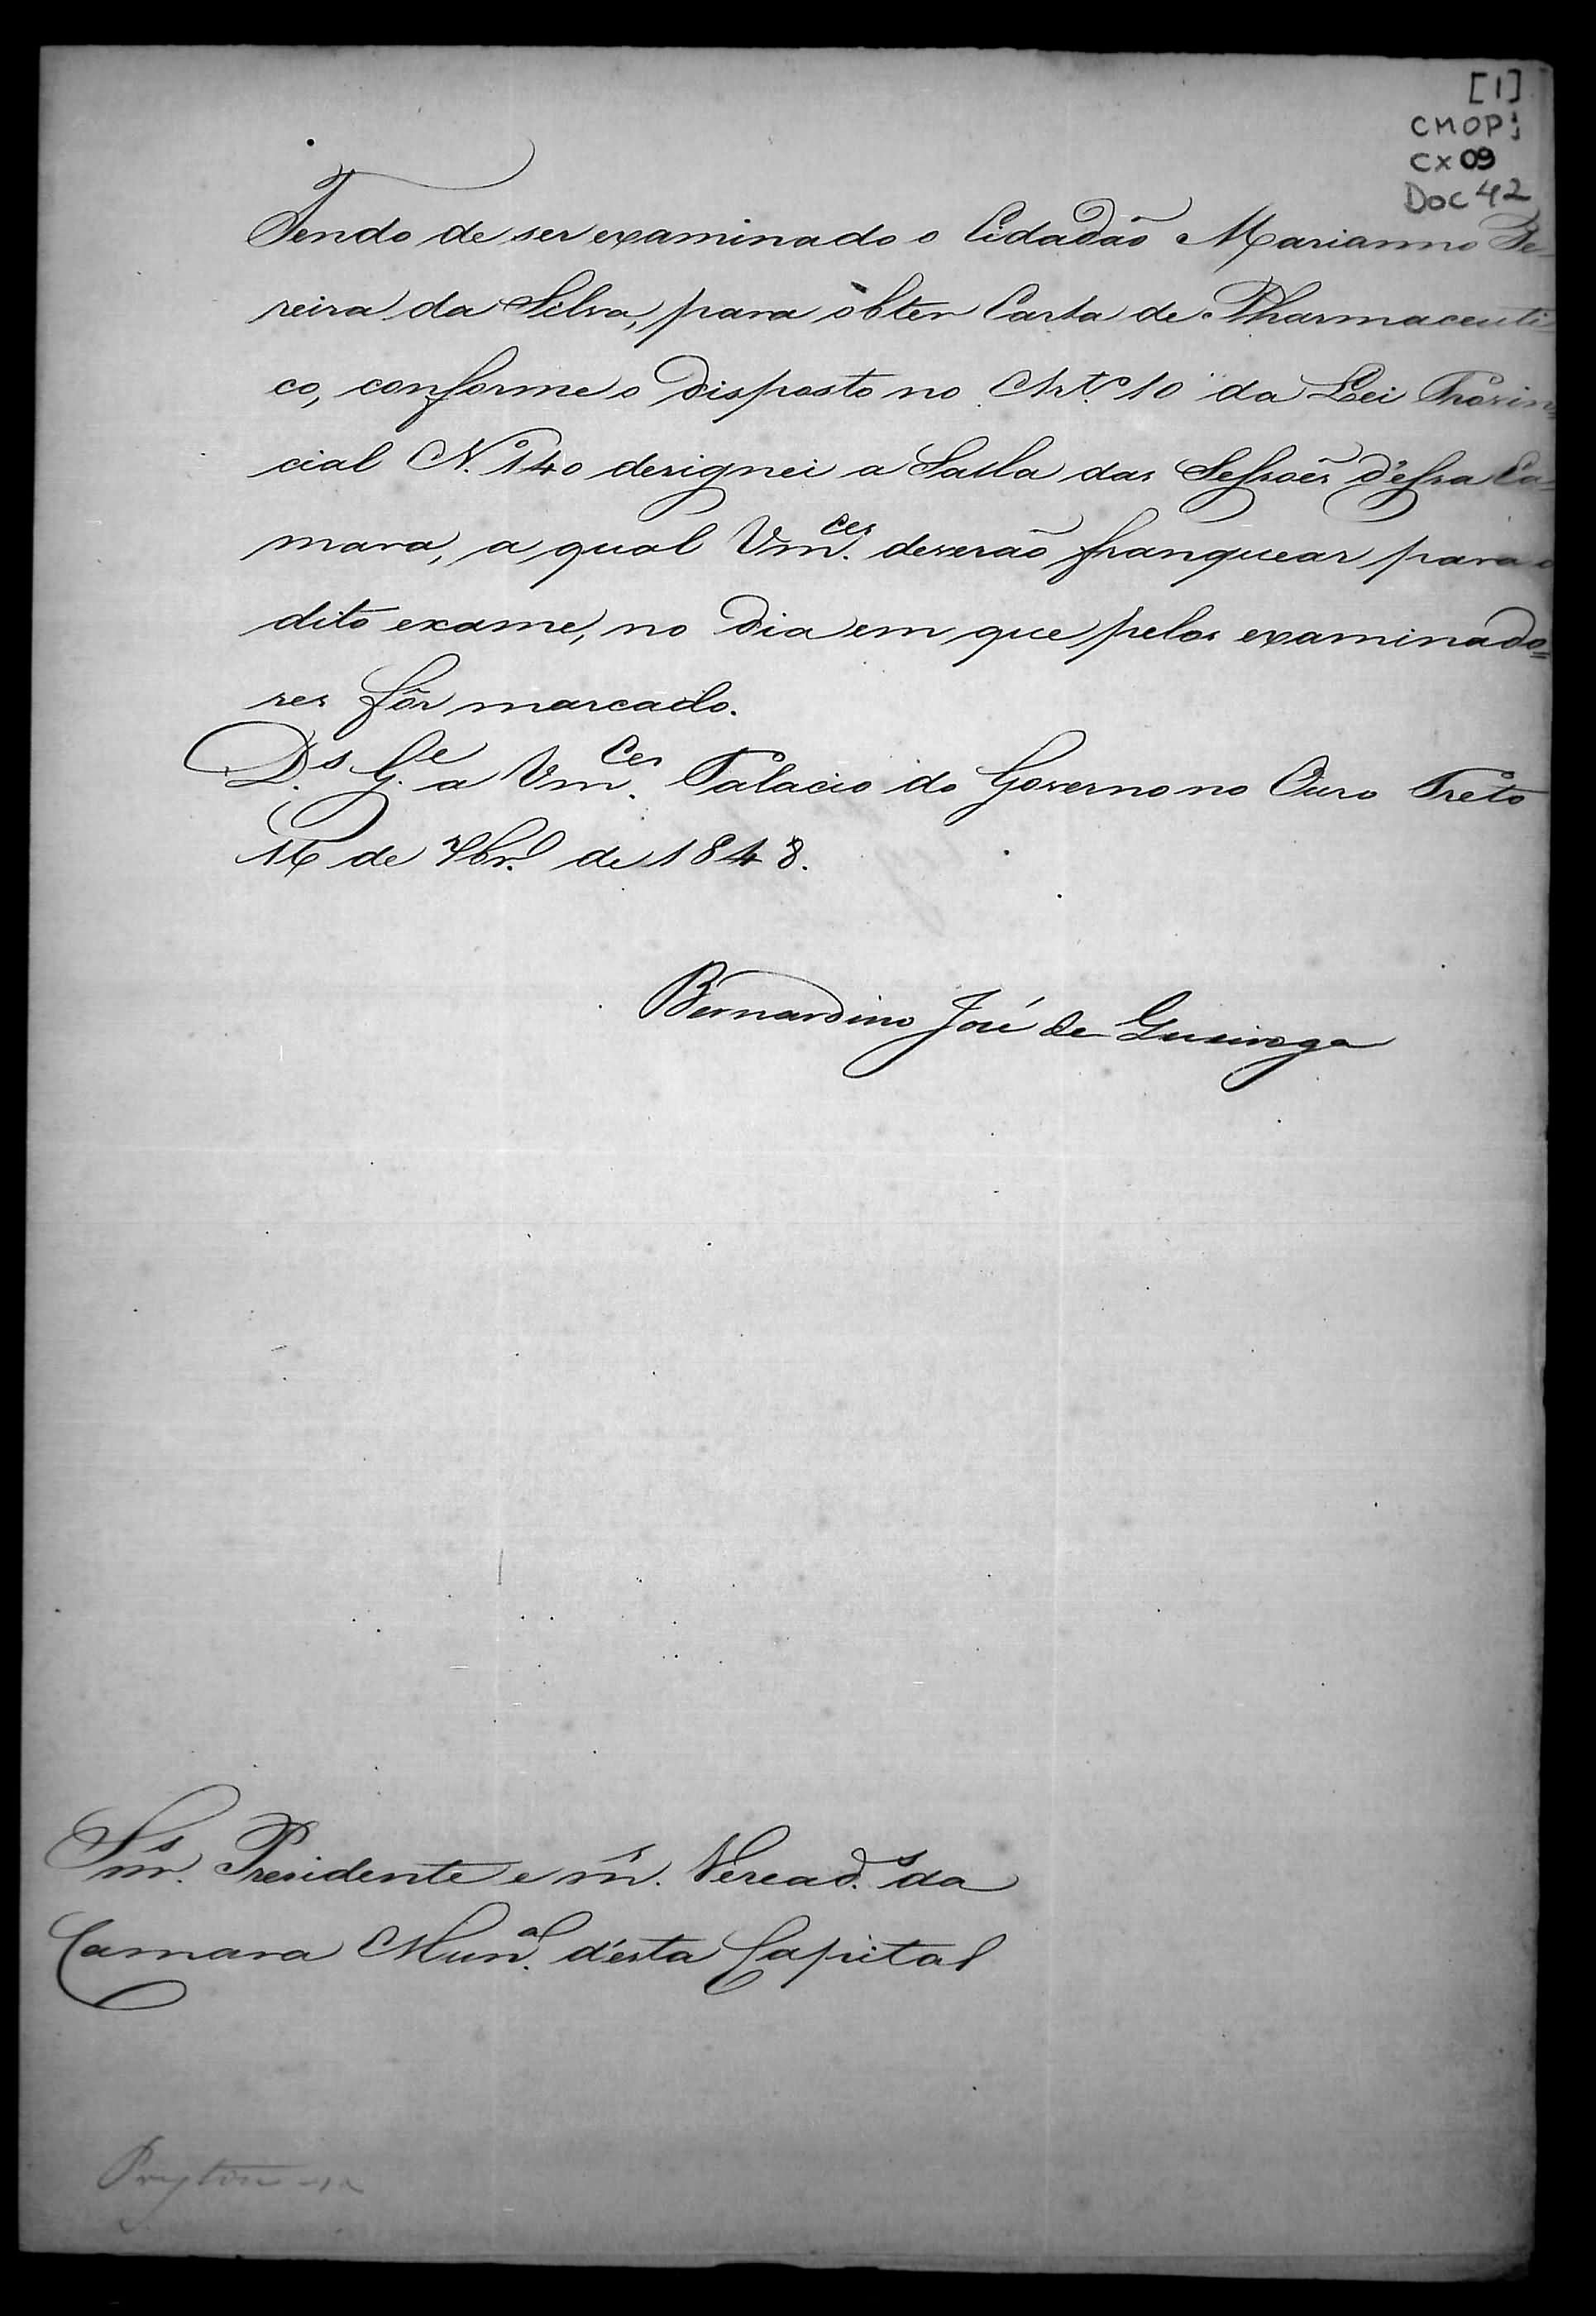 [1]
CMOP;
CX 09
DOC 42
Tendo de ser examinado o Cidadão Marianno Pe-
reira da Silva, para obter Carta de Pharmaceuti-
co, conforme o disposto no Art.º 10 da Lei Provin=
cial N.º 140 designei a Salla das Sessões d'essa Ca=
mara, a qual Vm.ces deverão franquear para o
dito exame, no dia em que pelos examinado=
res fôr marcado.
D.s G.e a Vm.ces Palacio do Governo no Ouro Preto
16 de 7br.º de 1848.
Bernardino José de Queiroga
Snr.s Presidente e m.s Veread.s da
Camara Mun.al d'esta Capital